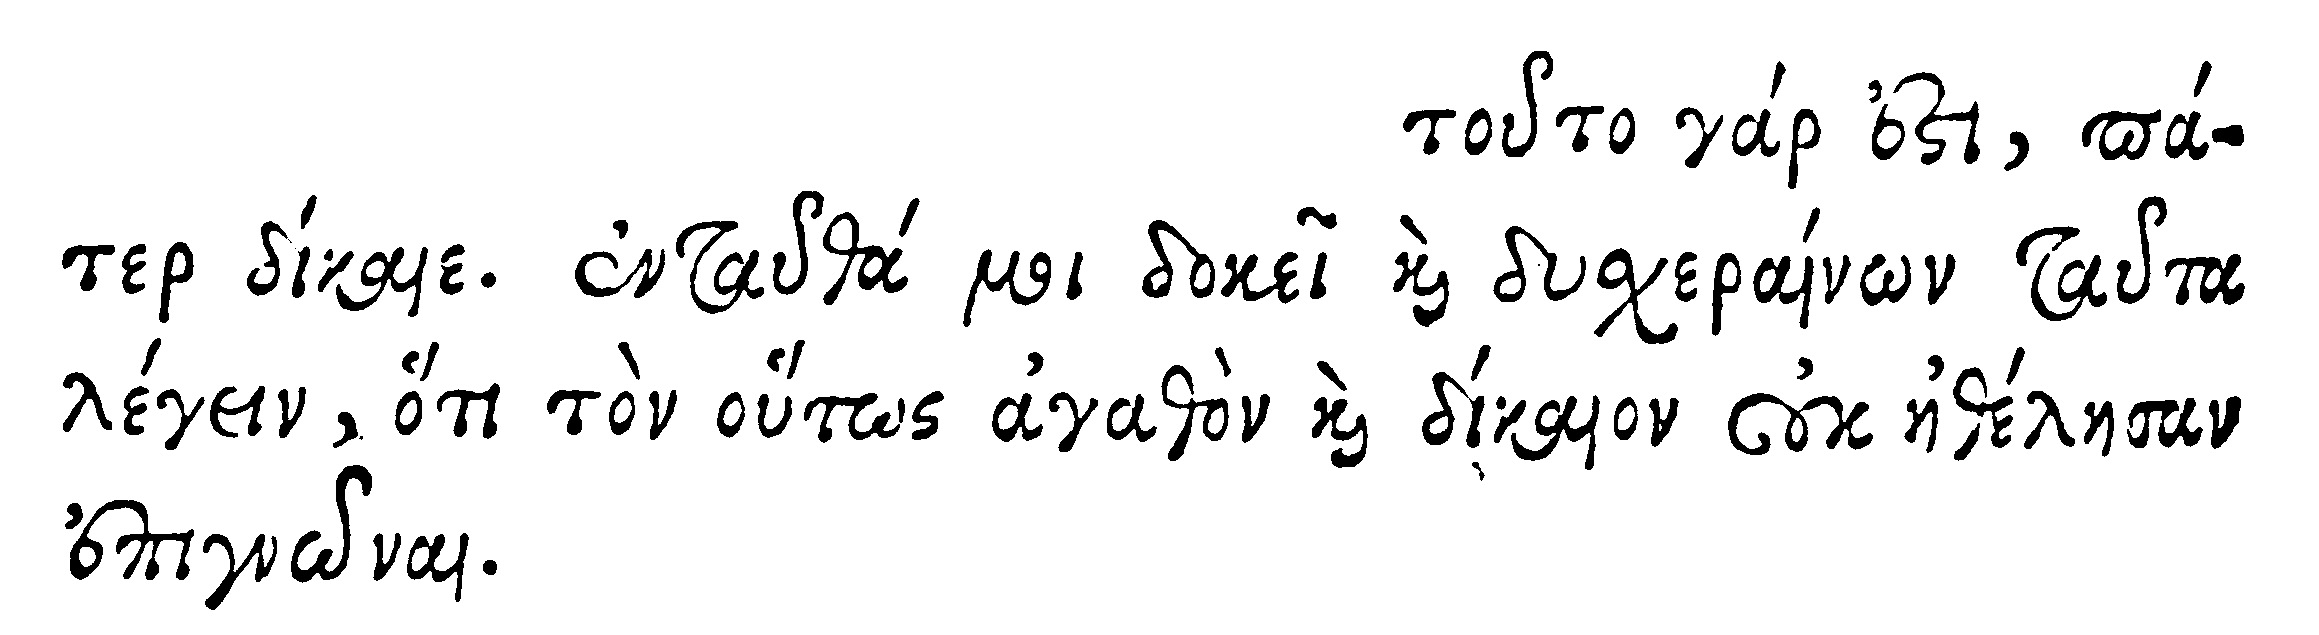 τοῦτο γάρ ἐστι, πά-
τερ δίκαιε. ἐνταῦθά μοι δοκεῖ καὶ δυχεραίνων ταῦτα
λέγειν, ὅτι τὸν οὕτως ἀγαθὸν καὶ δίκαιον οὐκ ἠθέλησαν
ἐπιγνῶναι.